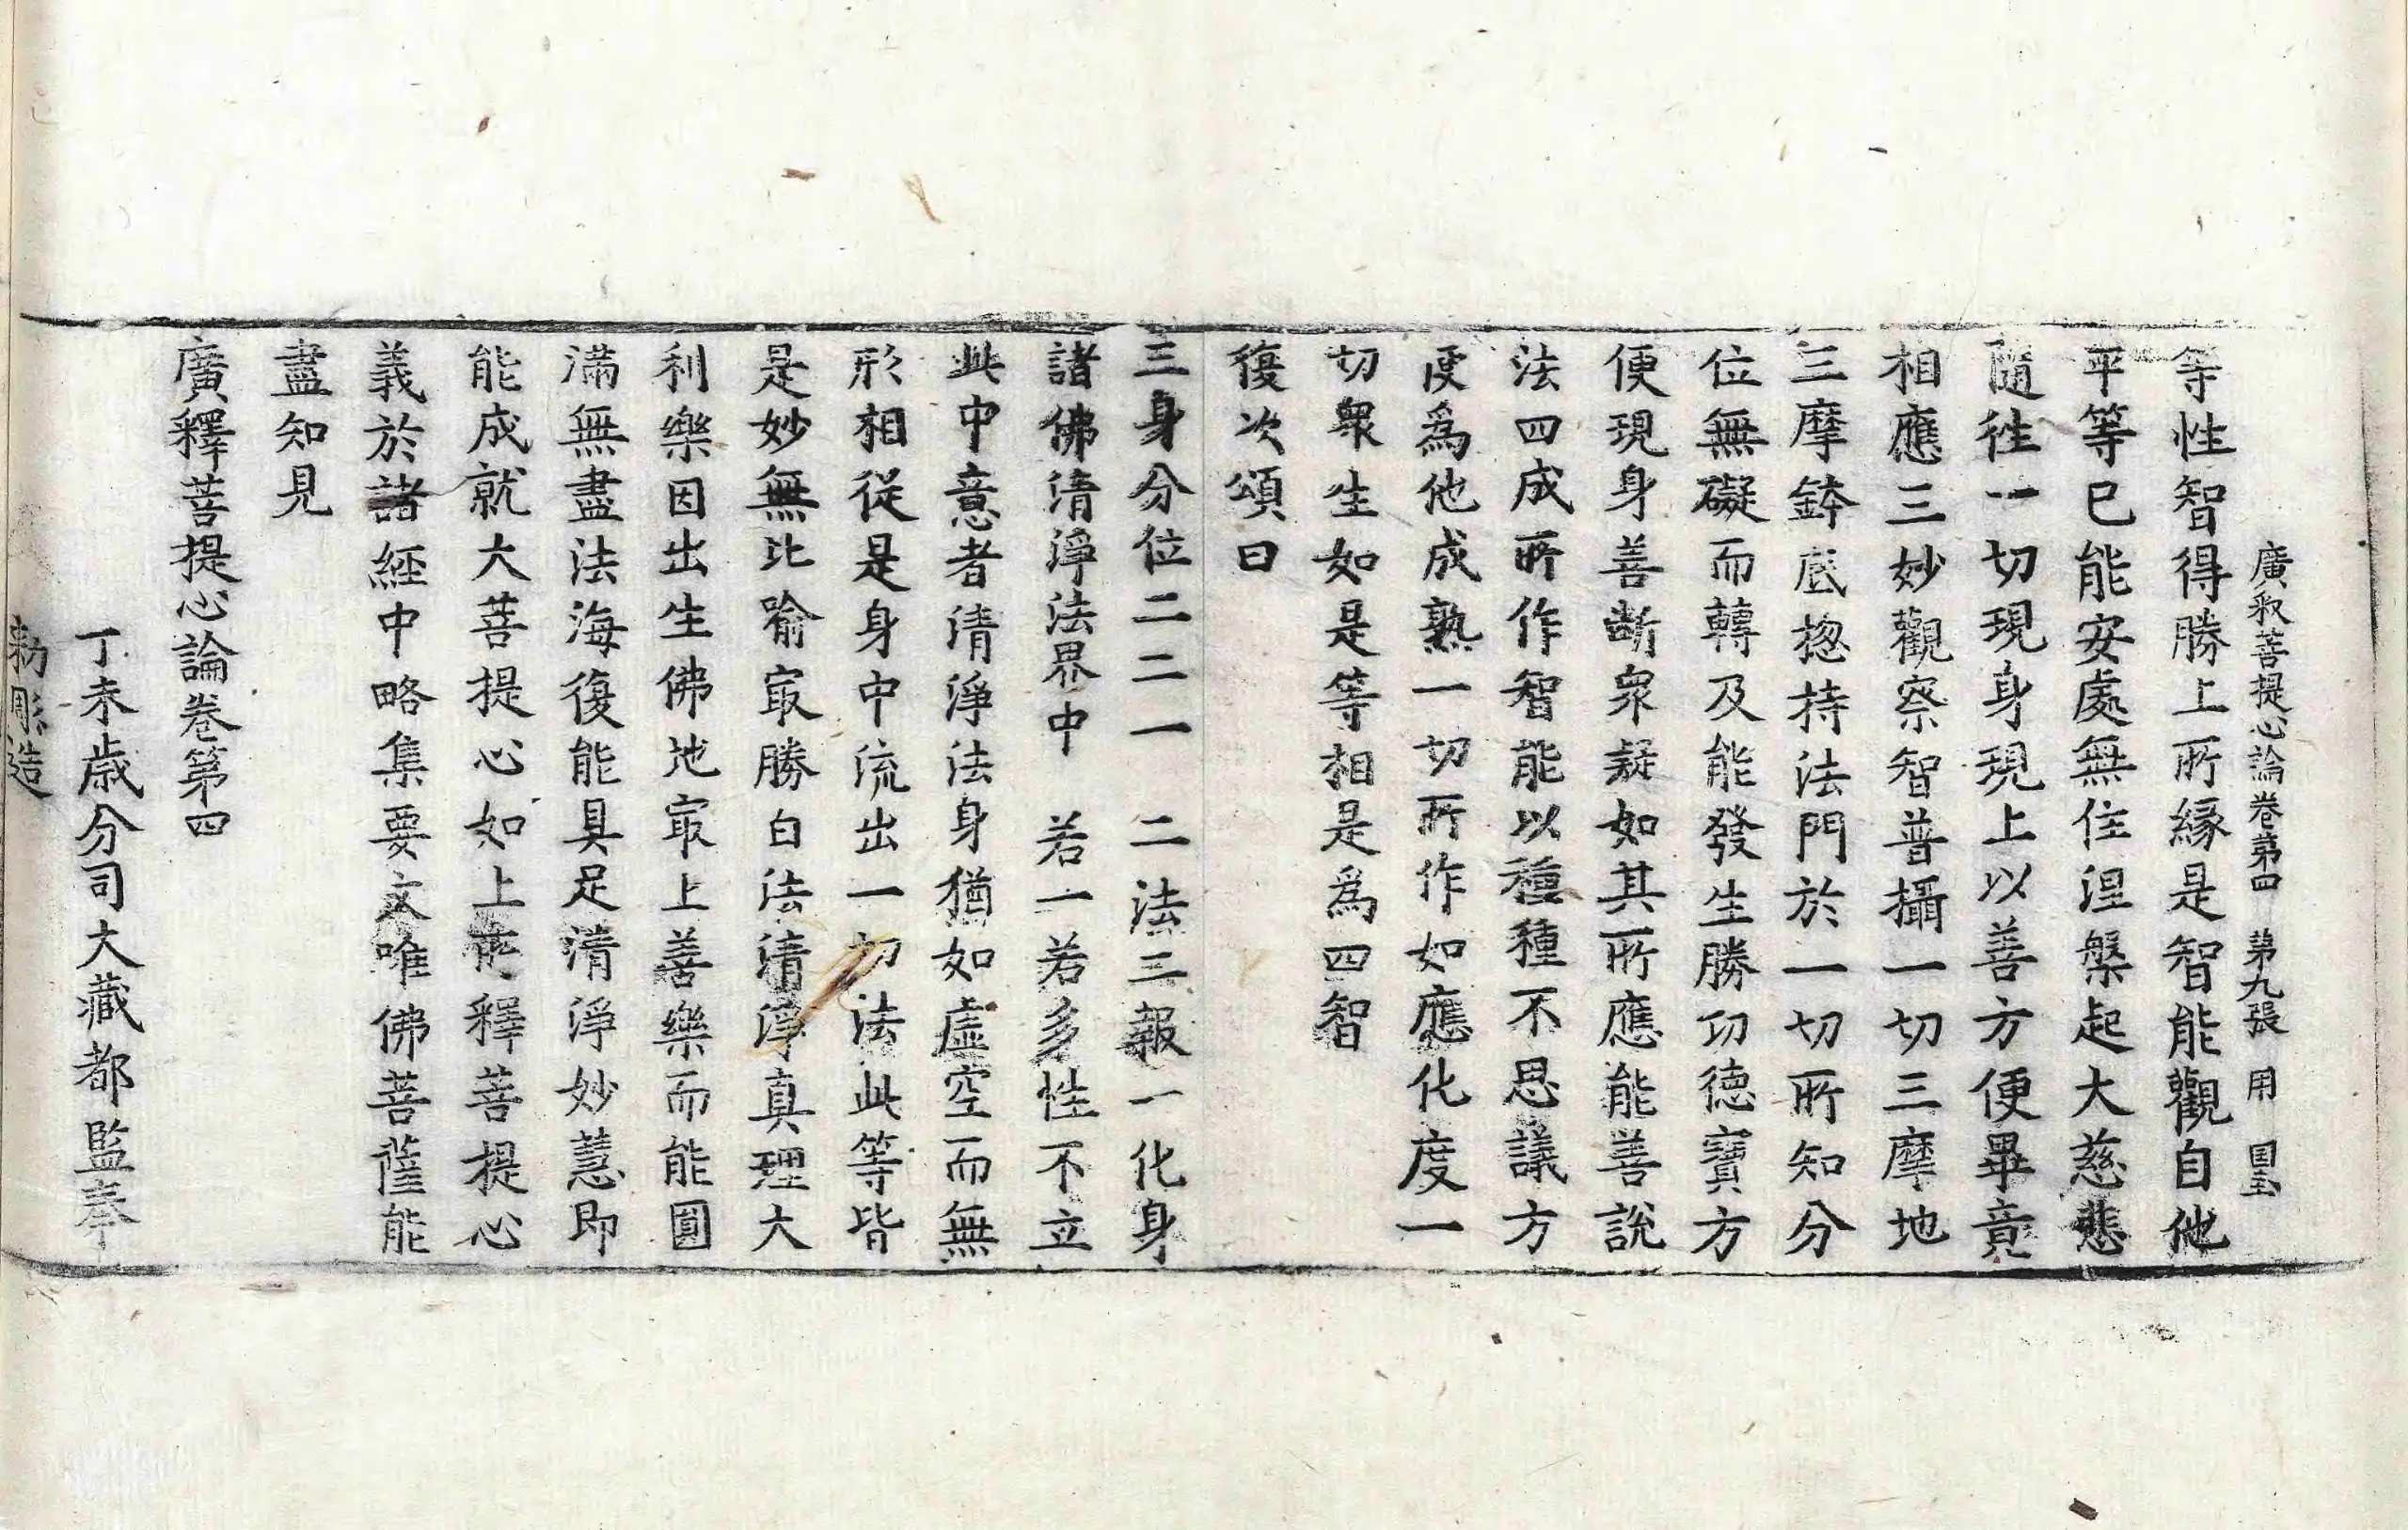 廣釈菩提心論卷第四　第九張　用　国玉
等性智得勝上所緣是智能觀自他
平等已能安處無住涅槃起大慈悲
隨徃一切現身現上以善方便畢竟
相應三妙觀察智普攝一切三摩地
三摩鉢底揔持法門於一切所知分
位無礙而轉及能發生勝功德寶方
便現身善斷衆疑如其所應能善說
法四成所作智能以種種不思議方
便爲他成熟一切所作如應化度一
切衆生如是等相是爲四智
復次頌曰
三身分位二二一　二法三報一化身
諸佛清淨法界中　若一若多性不立
此中意者清淨法身猶如虛空而無
形相從是身中流出一切法此等皆
是妙無比喻㝡勝白法清淨真理大
利樂因出生佛地㝡上善樂而能圓
滿無盡法海復能具足清淨妙慧即
能成就大菩提心如上所釋菩提心
義於諸經中略集要文唯佛菩薩能
盡知見
廣釋菩提心論卷第四
丁未歲分司大藏都監奉
勑彫造